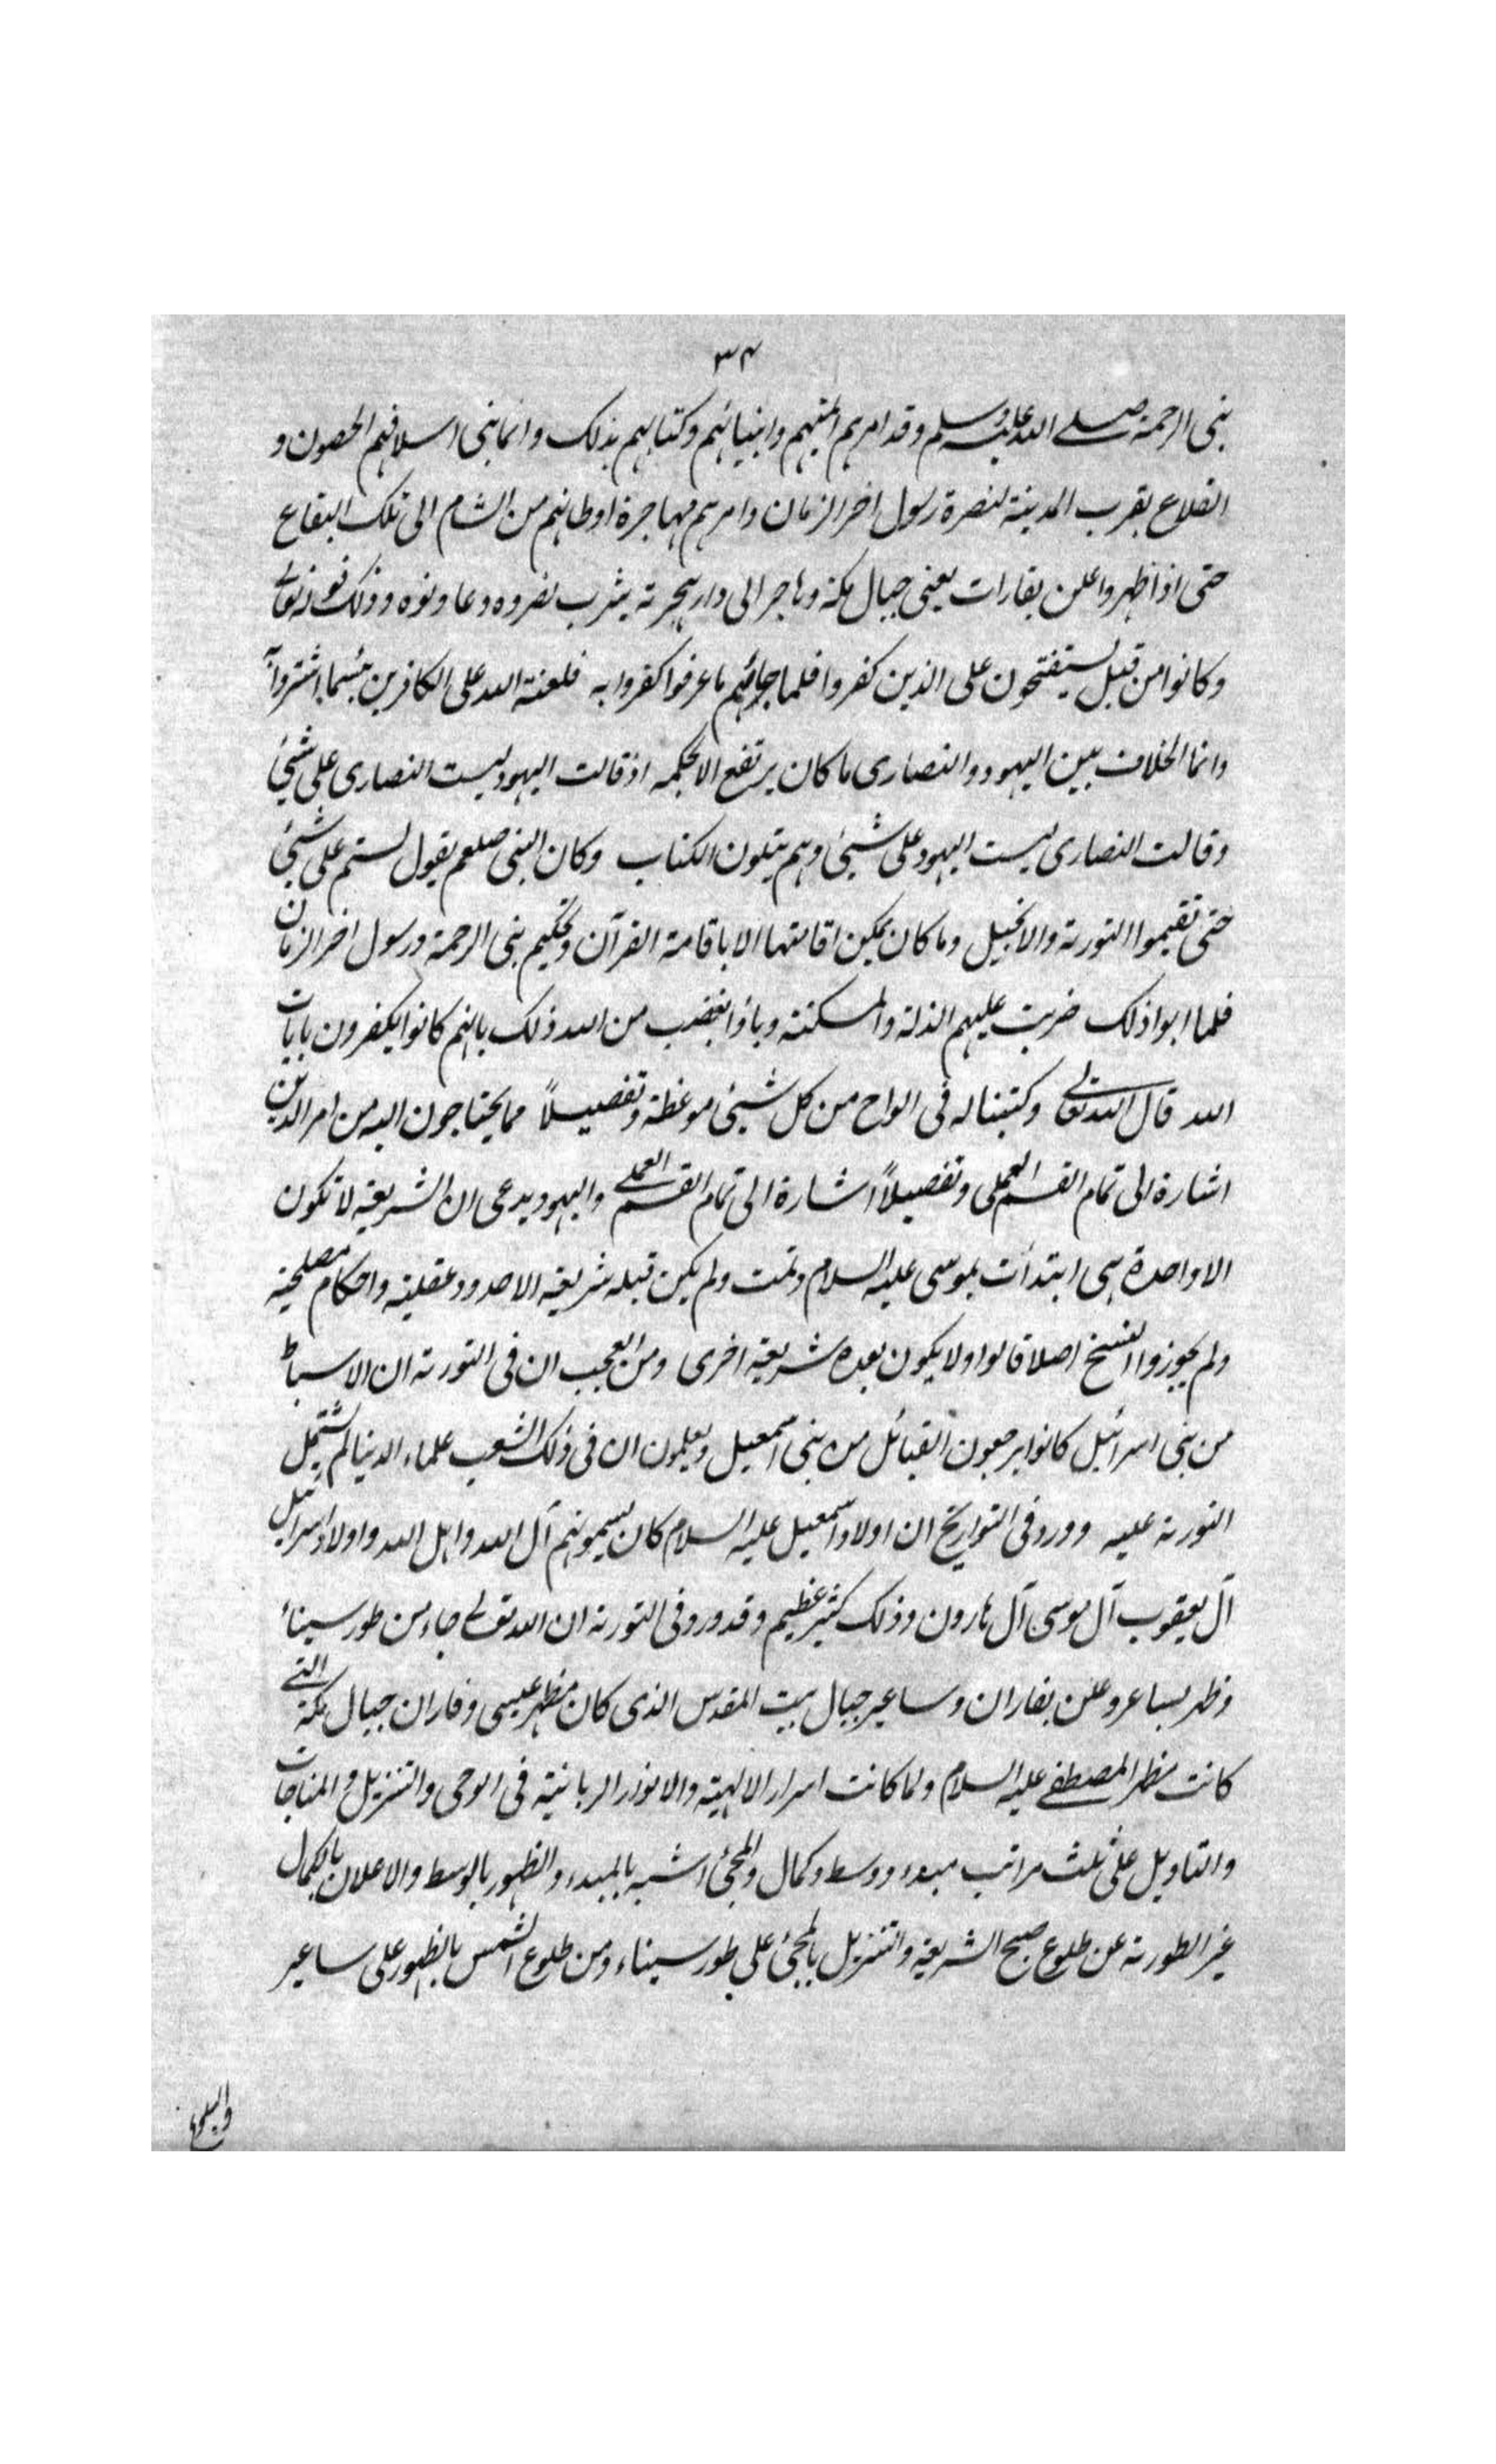 ٣٤
نبى الرحمة صلى الله عليه وسلم وقد امرهم ائمتهم وانبيائهم وكتابهم بذلك وانما بنى اسلافهم الحصون و
القلاع بقرب المدينة لنصرة رسول اخر الزمان وامرهم مهاجرة اوطانهم من الشام الى تلك البقاع
حتى اذا ظهر واعلن بفارات يعنى جبال مكة وهاجر الى دار هجرته يثرب نصروه وعاونوه وذلك قوله تعالى
وكانوا من قبل يستفتحون على الذين كفروا فلما جائهم ما عرفوا كفروا به فلعنة الله على الكافرين بئسما اشتروا
وانما الخلاف بين اليهود والنصارى ما كان يرتفع الا بحكمه اذ قالت اليهود ليست النصارى على شيئ
وقالت النصارى ليست اليهود على شيئ وهم يتلون الكتاب وكان النبى صلعم يقول لستم على شيئ
حتى تقيموا التورته والانجيل وما كان يمكن اقامتها الا باقامة القرآن وتحكيم نبى الرحمة ورسول اخر الزمان
فلما ابوا ذلك ضربت عليهم الذلة والمسكنة وباؤا بغضب من الله ذلك بانهم كانوا يكفرون بايات
الله قال الله تعالى وكتبنا له فى الواح من كل شيئ موعظة وتفصيلاً مما يحتاجون اليه من امر الدين
اشارة الى تمام القسم العملى وتفصيلاً اشارة الى تمام القسم العملى واليهود يدعى ان الشريعة لا تكون
الا واحدة هى ابتدأت بموسى عليه السلام وتمت ولم يكن قبله شريعة الا حدود عقلية واحكام مصلحية
ولم يجوزوا النسخ اصلا قالوا ولا يكون بعده شريعة اخرى ومن العجب ان فى التورته ان الاسباط
من بنى اسرائيل كانوا يرجعون القبائل من بنى اسمعيل ويعلمون ان فى ذلك الشعب علماء الدنيا لم يشتمل
التورته عليه وورد فى التواريخ ان اولاد اسمعيل عليه السلام كان يسمونهم آل الله واهل الله واولاد اسرائيل
آل يعقوب آل موسى آل هارون وذلك كثير عظيم وقد ورد فى التورته ان الله تعالى جاء من طور سيناء
وظهر بساعر وعلن بفاران وساعير جبال بيت المقدس الذى كان مظهر عيسى وفاران جبال مكة التى
كانت مظهر المصطفى عليه السلام ولما كانت اسرار الالهية والانوار الربانية فى الوحى والتنزيل والمناجات
والتاويل على ثلث مراتب مبدء ووسط وكمال والمجئ اشبه بالمبدء والظهور بالوسط والاعلان بالكمال
غير الطورته عن طلوع صبح الشريعة والتنزيل بالمجئ على طور سيناء ومن طلوع الشمس بالظهور على ساعير